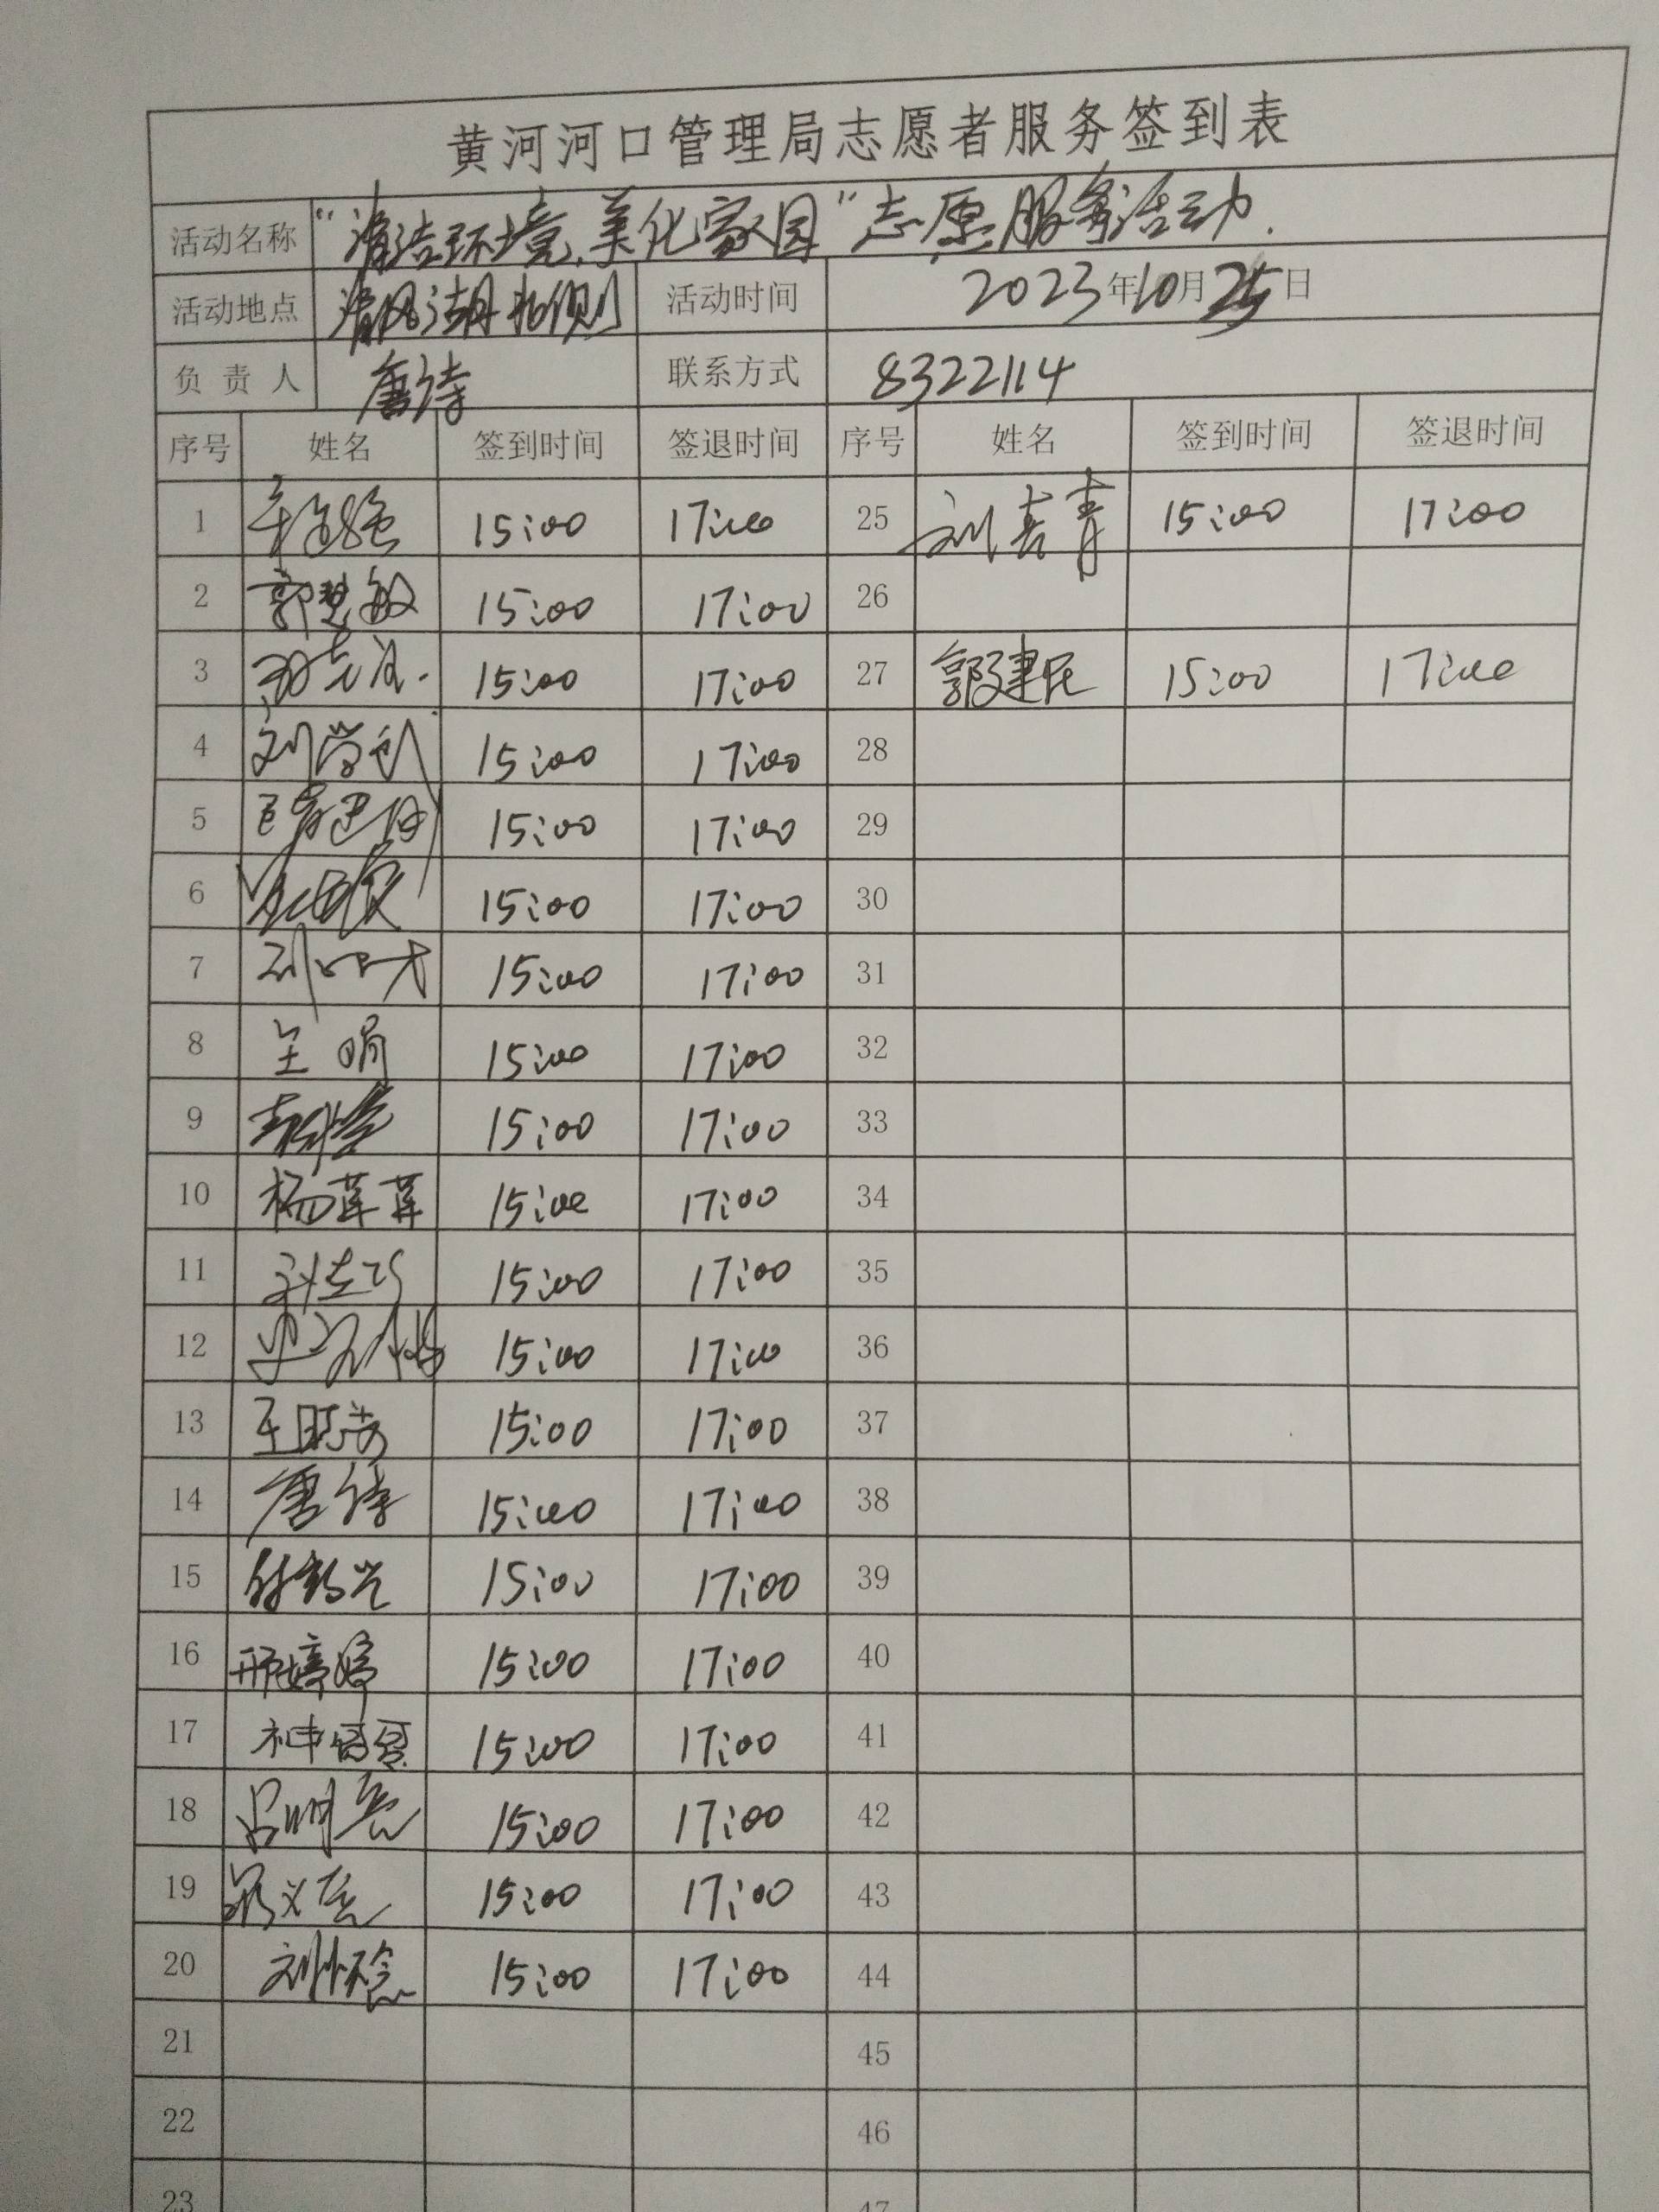 黄河河口管理局志愿者服务签到表
活动名称 “清洁环境,美化家园”志愿服务活动.
活动地点 清风湖北侧 活动时间 2023年10月25日
负 责 人 唐诗 联系方式 8322114
序号 姓名 签到时间 签退时间 序号 姓名 签到时间 签退时间
1 15:00 17:00 25 刘青 15:00 17:00
2 郭慧敏 15:00 17:00 26
3 15:00 17:00 27 郭建民 15:00 17:00
4 刘学 15:00 17:00 28
5 15:00 17:00 29
6 15:00 17:00 30
7 刘 15:00 17:00 31
8 王娟 15:00 17:00 32
9 15:00 17:00 33
10 杨莲莲 15:00 17:00 34
11 15:00 17:00 35
12 15:00 17:00 36
13 王 15:00 17:00 37
14 唐诗 15:00 17:00 38
15 15:00 17:00 39
16 邢婷婷 15:00 17:00 40
17 神 15:00 17:00 41
18 吕明亮 15:00 17:00 42
19 15:00 17:00 43
20 刘怀念 15:00 17:00 44
21 45
22 46
23 47